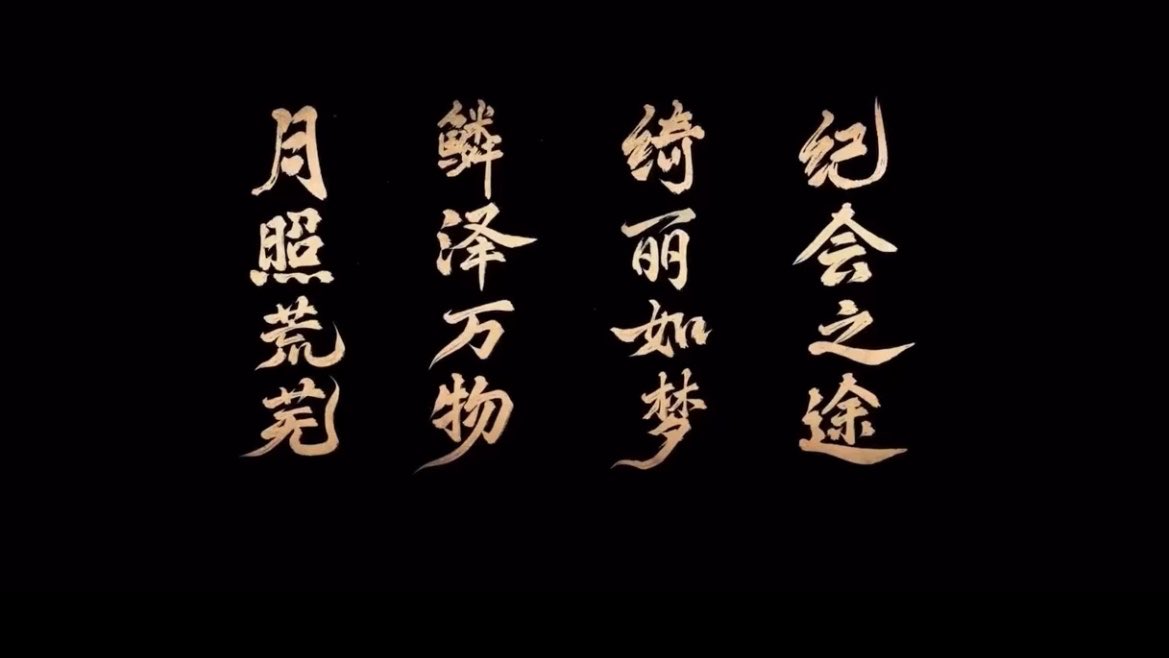 纪会之途
绮丽如梦
鳞泽万物
月照荒芜